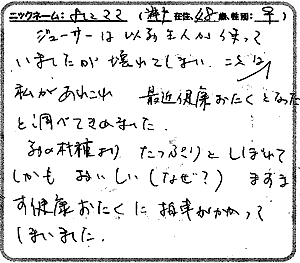 ニックネーム:よしこママ (神戸在住、68歳、性別:早)
ジューサーは以前主人が使って
いましたが壊れてしまい、ことは
私があれこれ 最近健康おたくとなった
と調べてきめました。
前の機種より たっぷりと しぼれて
しかも おいしい(なぜ?) ますま
す健康おたくに拍車がかかって
しまいました。